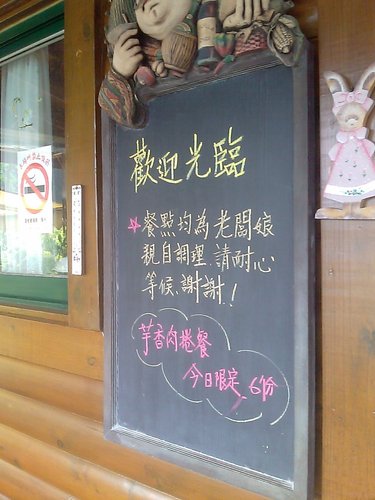 歡迎光臨
餐點均為老闆娘
親自調理.請耐心
等候.謝謝!
芋香肉捲餐
今日限定.6份